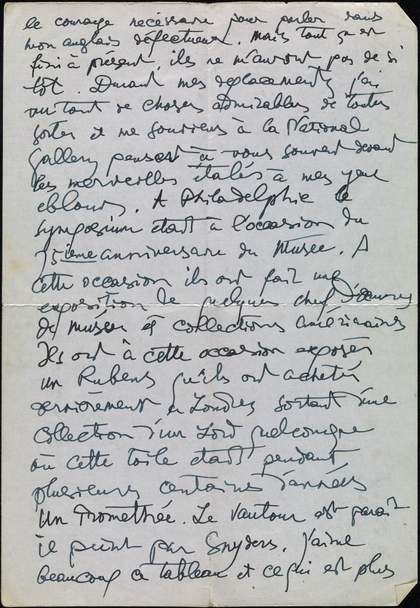 le courage nécessaire pour parler dans
mon anglais défectueux. Mais tout ça est
fini à présent, ils ne m'auront pas de si
tôt. Durant mes déplacements j'ai
vu tant de choses admirables de toutes
sortes et me souviens à la National
Gallery pensant à vous souvent devant
les merveilles étalés à mes yeux
éblouis. A Philadelphie le
symposium était à l'occasion du
75ième anniversaire du Musée. A
cette occasion ils ont fait une
exposition de quelques chef d'oeuvres
de musées et collections américaines
Ils ont à cette occasion exposés
un Rubens qu'ils ont acheté
dernièrement à Londres sortant d'une
collection d'un Lord quelconque
où cette toile était pendant
plusieurs centaines d'années
Un Promethée. Le Vautour est parait
il peint par Snyders. J'aime
beaucoup ce tableau et ce qui est plus